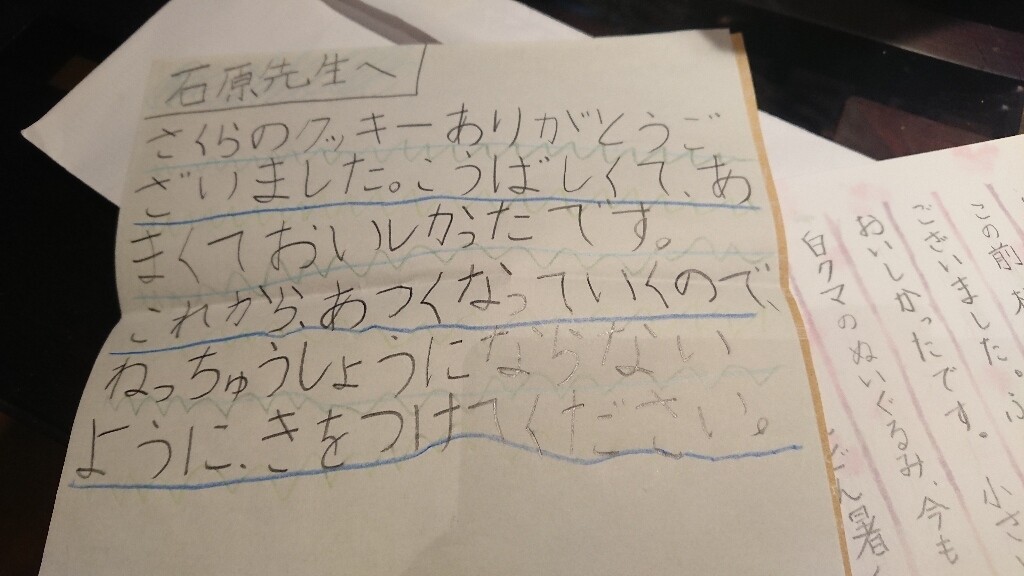 石原先生へ
さくらのクッキーありがとうご
ざいました。こうばしくて、あ
まくておいしかったです。
これから、あつくなっていくので、
ねっちゅうしょうにならない
ように、きをつけてください。
この前
ございました。ふ
おいしかったです。小さ
白クマのぬいぐるみ、今も
ごん暑